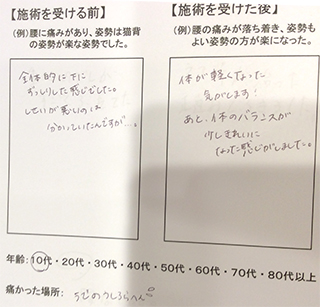 【施術を受ける前】
(例)腰に痛みがあり、姿勢は猫背
の姿勢が楽な姿勢でした。
全体的に下に
ずっしりした感じでした。
しせいが悪いのは
分かっていたんですが…。
【施術を受けた後】
(例)腰の痛みが落ち着き、姿勢も
よい姿勢の方が楽になった。
体が軽くなった
気がします!
あと、体のバランスが
少しきれいに
なった感じがしました。
年齢:10代・20代・30代・40代・50代・60代・70代・80代以上
痛かった場所: うでのうしろらへん